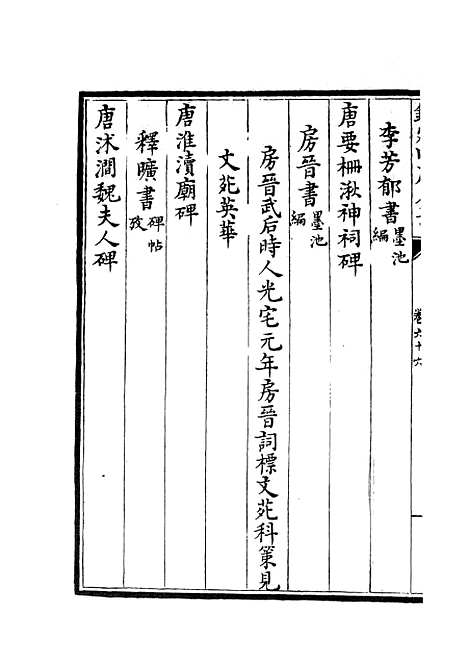 李芳郁書墨池編
唐要柵湫神祠碑
房晉書墨池編
房晉武后時人光宅元年房晉詞標文苑科策見
文苑英華
唐淮瀆廟碑
釋曠書碑帖攷
唐沭澗魏夫人碑
卷六十六